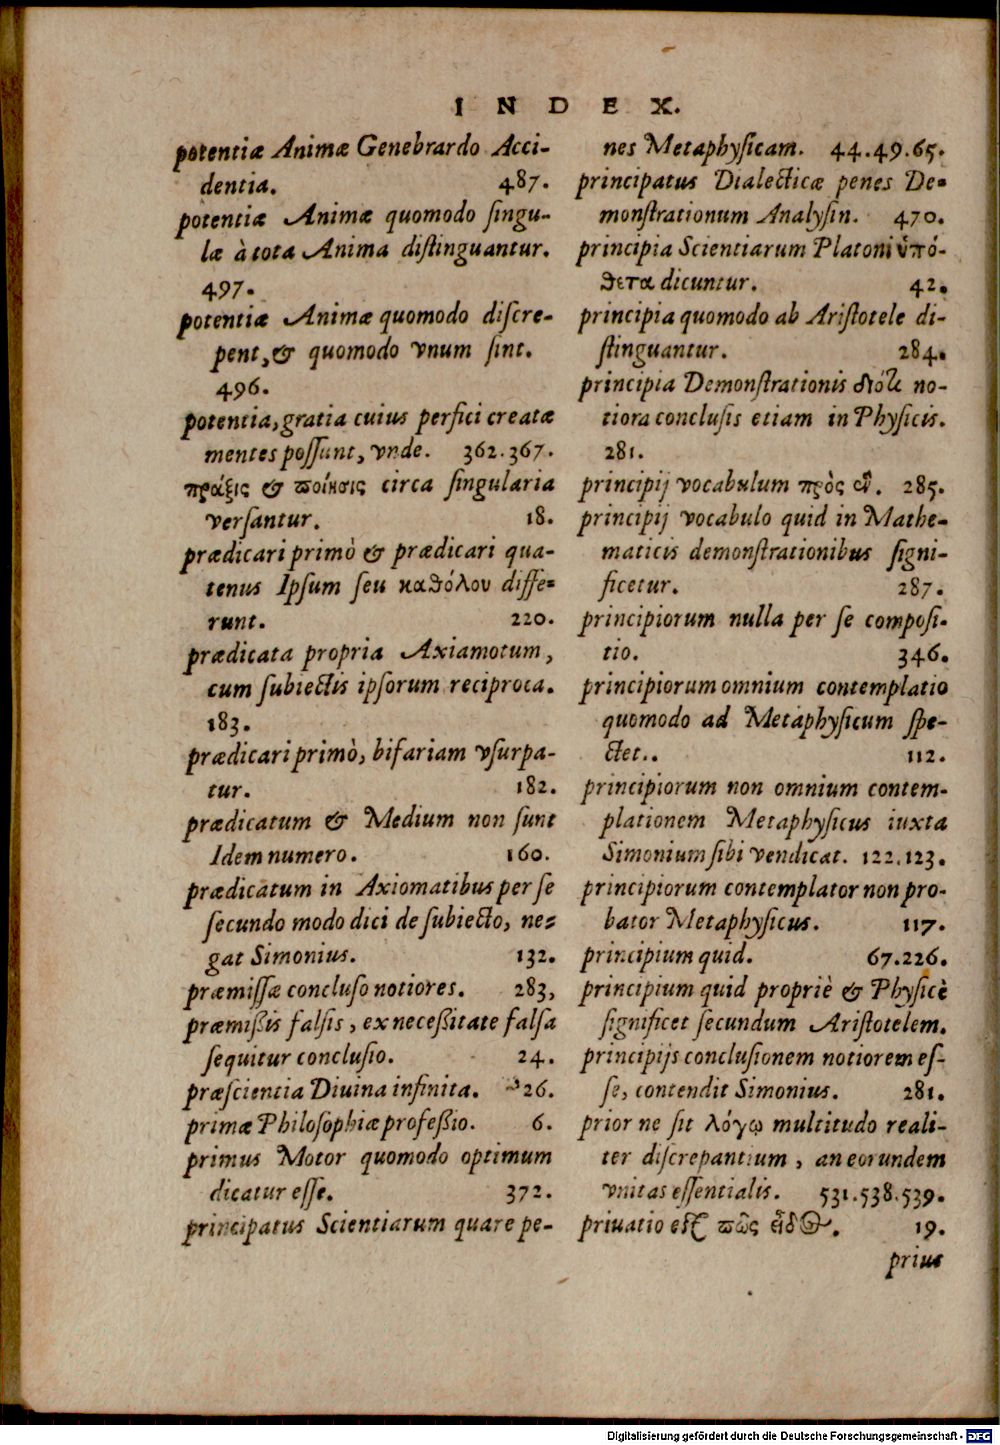 INDEX.
potentiæ Animæ Genebrardo Acci-
dentia. 487.
potentiæ Animæ quomodo ſingu-
læ à tota Anima diſtinguantur.
497.
potentiæ Animæ quomodo diſcre-
pent, & quomodo vnum ſint.
496.
potentia, gratia cuius perfici creatæ
mentes poſſunt, vnde. 362.367.
πράξις & ποίησις circa ſingularia
verſantur. 18.
prædicari primò & prædicari qua-
tenus Ipſum ſeu καθόλου diffe-
runt. 220.
prædicata propria Axiamotum,
cum ſubiectis ipſorum reciproca.
183.
prædicari primò, bifariam vſurpa-
tur. 182.
prædicatum & Medium non ſunt
Idem numero. 160.
prædicatum in Axiomatibus per ſe
ſecundo modo dici de ſubiecto, ne-
gat Simonius. 132.
præmiſſæ concluſo notiores. 283,
præmißis falſis, ex neceßitate falſa
ſequitur concluſio. 24.
præſcientia Diuina infinita. 326.
primæ Philoſophiæ profeßio. 6.
primus Motor quomodo optimum
dicatur eſſe. 372.
principatus Scientiarum quare pe-
nes Metaphyſicam. 44.49.65.
principatus Dialecticæ penes De-
monſtrationum Analyſin. 470.
principia Scientiarum Platoni ὑπό-
θετα dicuntur. 42.
principia quomodo ab Ariſtotele di-
ſtinguantur. 284.
principia Demonſtrationis διότι no-
tiora concluſis etiam in Phyſicis.
281.
principij vocabulum πρὸς ἓν. 285.
principij vocabulo quid in Mathe-
maticis demonſtrationibus ſigni-
ficetur. 287.
principiorum nulla per ſe compoſi-
tio. 346.
principiorum omnium contemplatio
quomodo ad Metaphyſicum ſpe-
ctet.. 112.
principiorum non omnium contem-
plationem Metaphyſicus iuxta
Simonium ſibi vendicat. 122.123.
principiorum contemplator non pro-
bator Metaphyſicus. 117.
principium quid. 67.226.
principium quid propriè & Phyſicè
ſignificet ſecundum Ariſtotelem.
principijs concluſionem notiorem eſ-
ſe, contendit Simonius. 281.
prior ne ſit λόγῳ multitudo reali-
ter diſcrepantium, an eorundem
vnitas eſſentialis. 531.538.539.
priuatio eſt πῶς εἶδος. 19.
prius
Digitalisierung gefördert durch die Deutsche Forschungsgemeinschaft - DFG